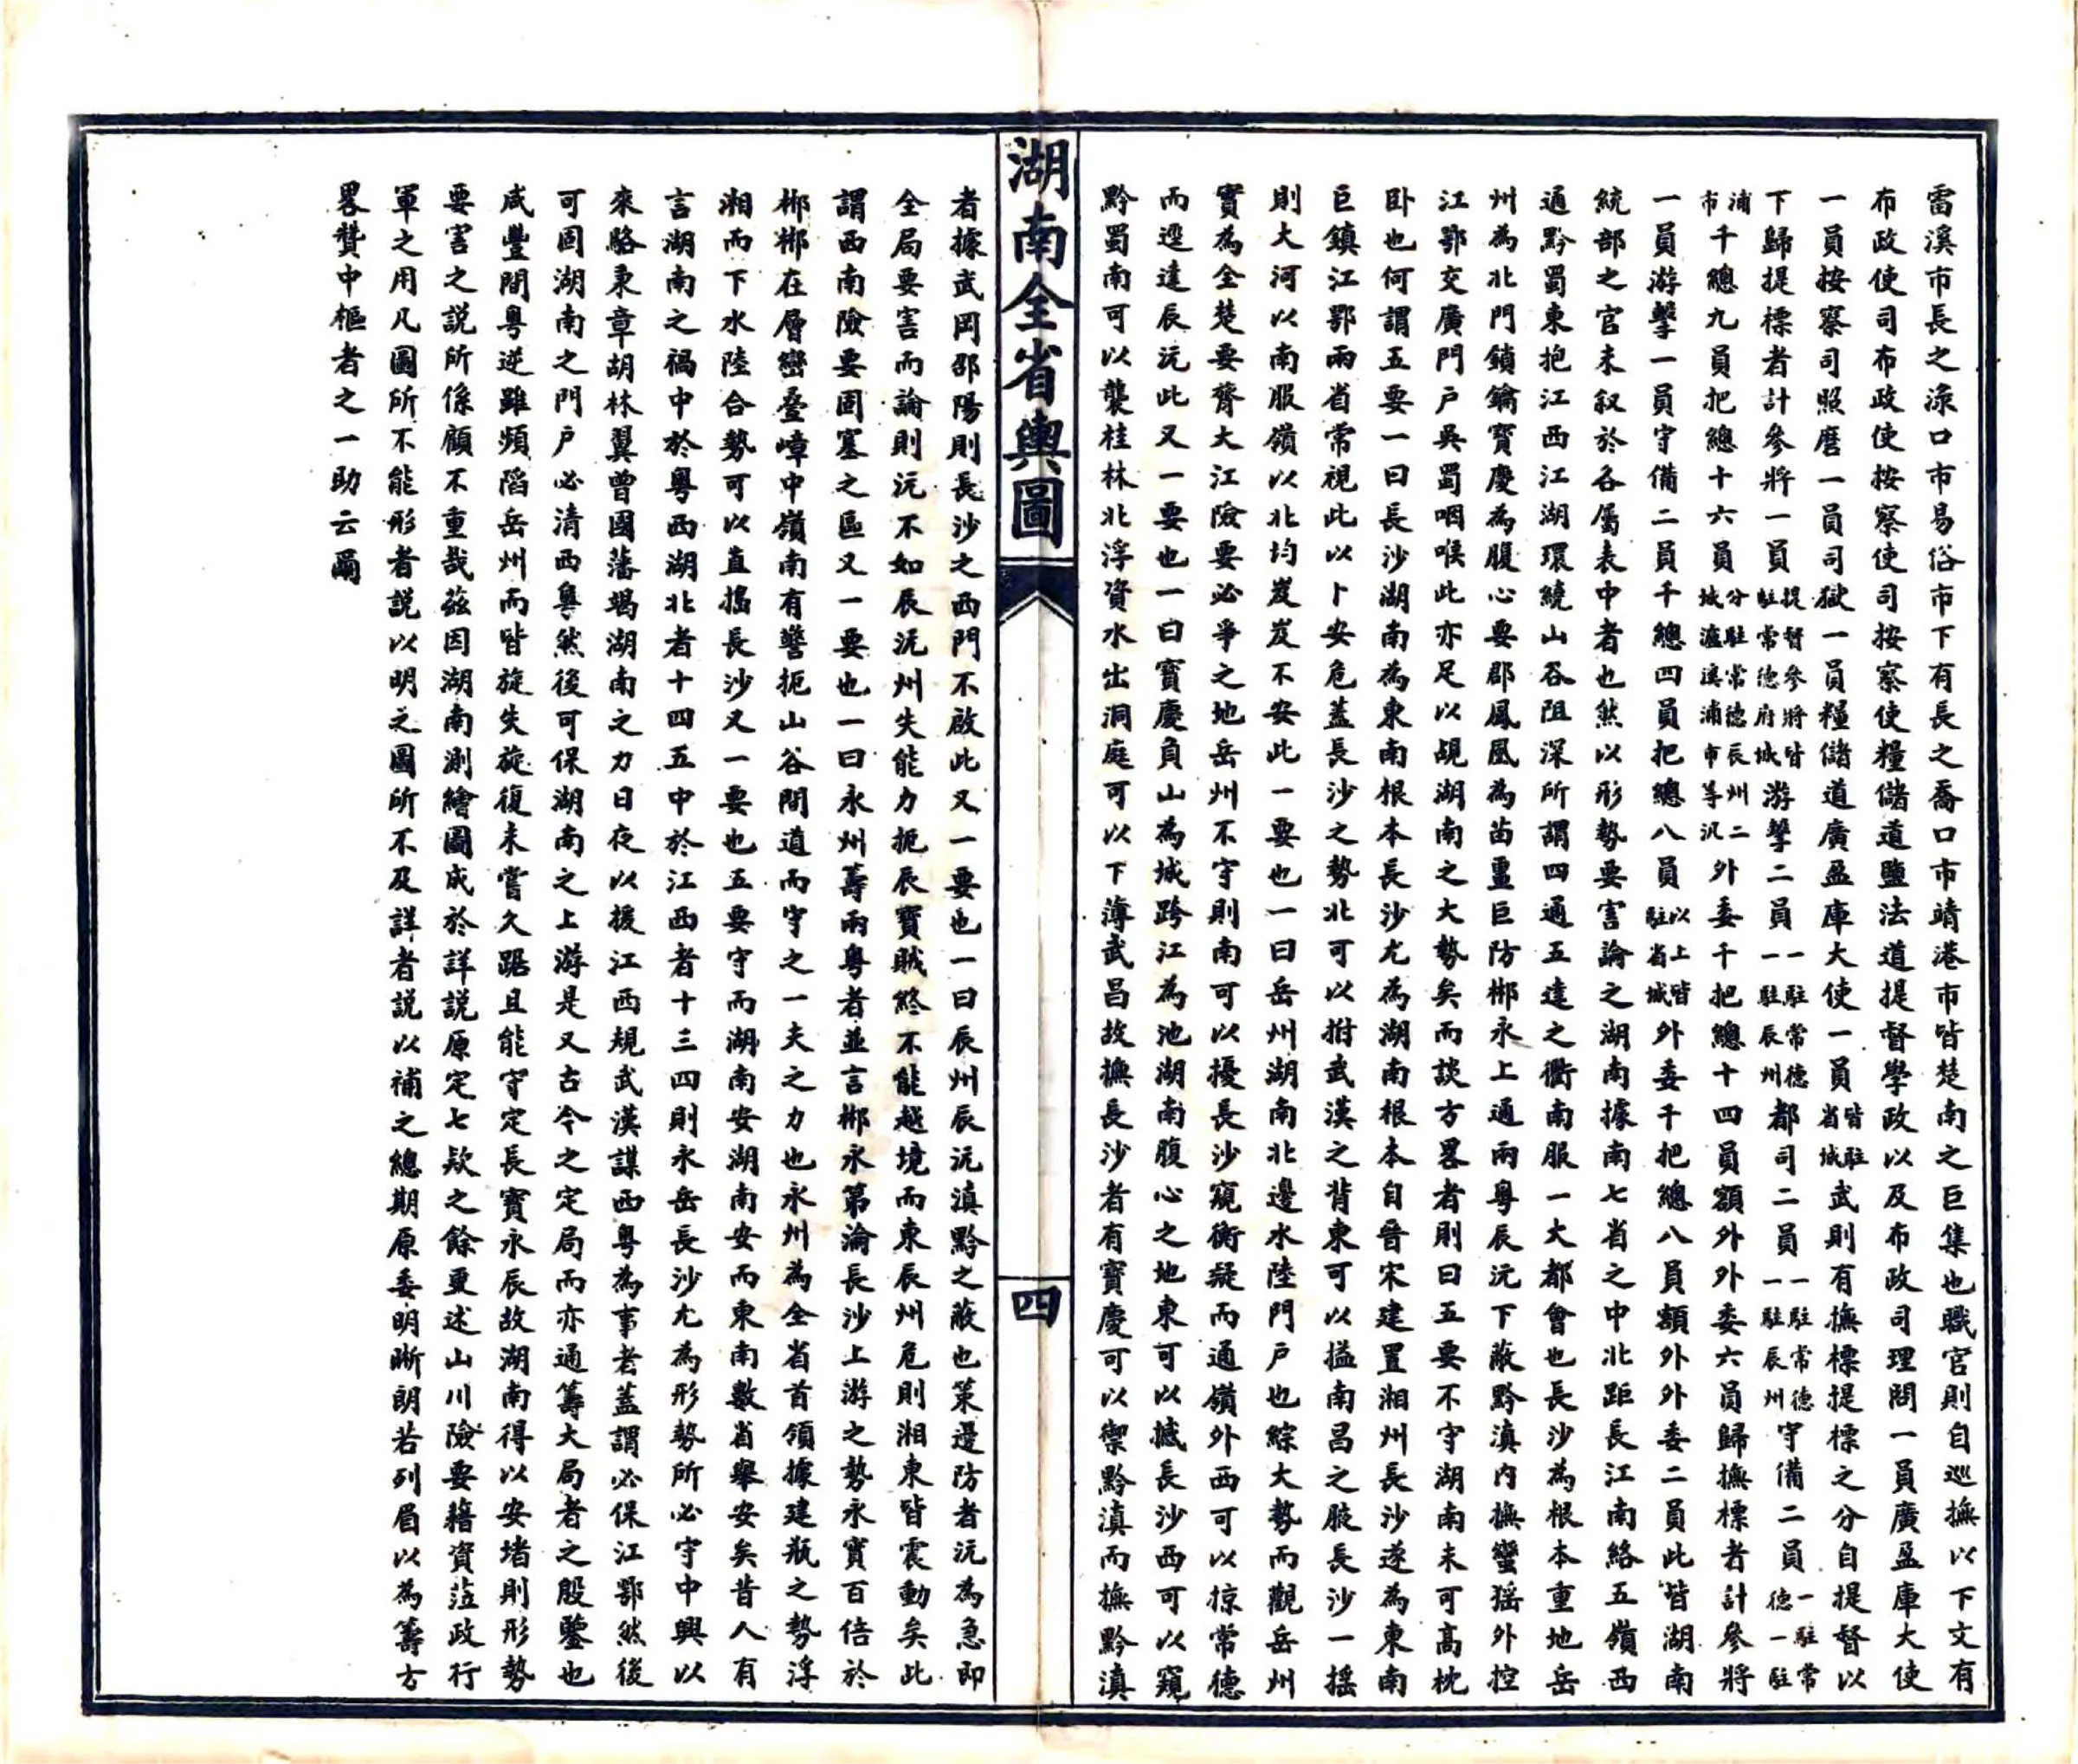 雷溪市長之淥口市易俗市下有長之喬口市靖港市皆楚南之巨集也職官則自巡撫以下文有
布政使司布政使按察使司按察使糧儲道鹽法道提督學政以及布政司理問一員廣盈庫大使
一員按察司照磨一員司獄一員糧儲道廣盈庫大使一員皆駐省城武則有撫標提標之分自提督以
下歸提標者計參將一員提督參將皆駐常德府城游擊二員一駐常德一駐辰州都司二員一駐常德一駐辰州守備二員一駐常德一駐
浦市千總九員把總十六員分駐常德辰州二城瀘溪浦市等汛外委千把總十四員額外外委六員歸撫標者計參將
一員游擊一員守備二員千總四員把總八員以上皆駐省城外委千把總八員額外外委二員此皆湖南
統部之官未叙於各屬表中者也然以形勢要害論之湖南據南七省之中北距長江南絡五嶺西
通黔蜀東抱江西江湖環繞山谷阻深所謂四通五達之衢南服一大都會也長沙為根本重地岳
州為北門鎖鑰寶慶為腹心要郡鳳凰為苗畺巨防郴永上通兩粵辰沅下蔽黔滇内撫蠻猺外控
江鄂交廣門户吳蜀咽喉此亦足以覘湖南之大勢矣而談方畧者則曰五要不守湖南未可高枕
卧也何謂五要一曰長沙湖南為東南根本長沙尤為湖南根本自晉宋建置湘州長沙遂為東南
巨鎮江鄂兩省常視此以卜安危蓋長沙之勢北可以拊武漢之背東可以搤南昌之脰長沙一摇
則大河以南服嶺以北均岌岌不安此一要也一曰岳州湖南北邊水陸門户也綜大勢而觀岳州
實為全楚要膂大江險要必爭之地岳州不守則南可以擾長沙窺衡疑而通嶺外西可以掠常德
而逕達辰沅此又一要也一曰寶慶負山為城跨江為池湖南腹心之地東可以撼長沙西可以窺
黔蜀南可以襲桂林北浮資水出洞庭可以下薄武昌故撫長沙者有寶慶可以禦黔滇而撫黔滇
湖南全省輿圖
四
者據武岡邵陽則長沙之西門不啟此又一要也一曰辰州辰沅滇黔之蔽也策邊防者沅為急即
全局要害而論則沅不如辰沅州失能力扼辰寶賊終不能越境而東辰州危則湘東皆震動矣此
謂西南險要固塞之區又一要也一曰永州籌兩粵者並言郴永第淪長沙上游之勢永實百倍於
郴郴在層巒疊嶂中嶺南有警扼山谷間道而守之一夫之力也永州為全省首領據建瓶之勢浮
湘而下水陸合勢可以直搗長沙又一要也五要守而湖南安湖南安而東南數省舉安矣昔人有
言湖南之禍中於粵西湖北者十四五中於江西者十三四則永岳長沙尤為形勢所必守中興以
來駱秉章胡林翼曾國藩竭湖南之力日夜以援江西規武漢謀西粵為事者蓋謂必保江鄂然後
可固湖南之門户必清西粵然後可保湖南之上游是又古今之定局而亦通籌大局者之殷鑒也
咸豐間粵逆雖頻䧟岳州而皆旋失旋復未嘗久踞且能守定長寶永辰故湖南得以安堵則形勢
要害之説所係顧不重哉茲因湖南測繪圖成於詳説原定七欵之餘更述山川險要藉資蒞政行
軍之用凡圖所不能形者説以明之圖所不及詳者説以補之總期原委明晰朗若列眉以為籌方
畧贊中樞者之一助云爾